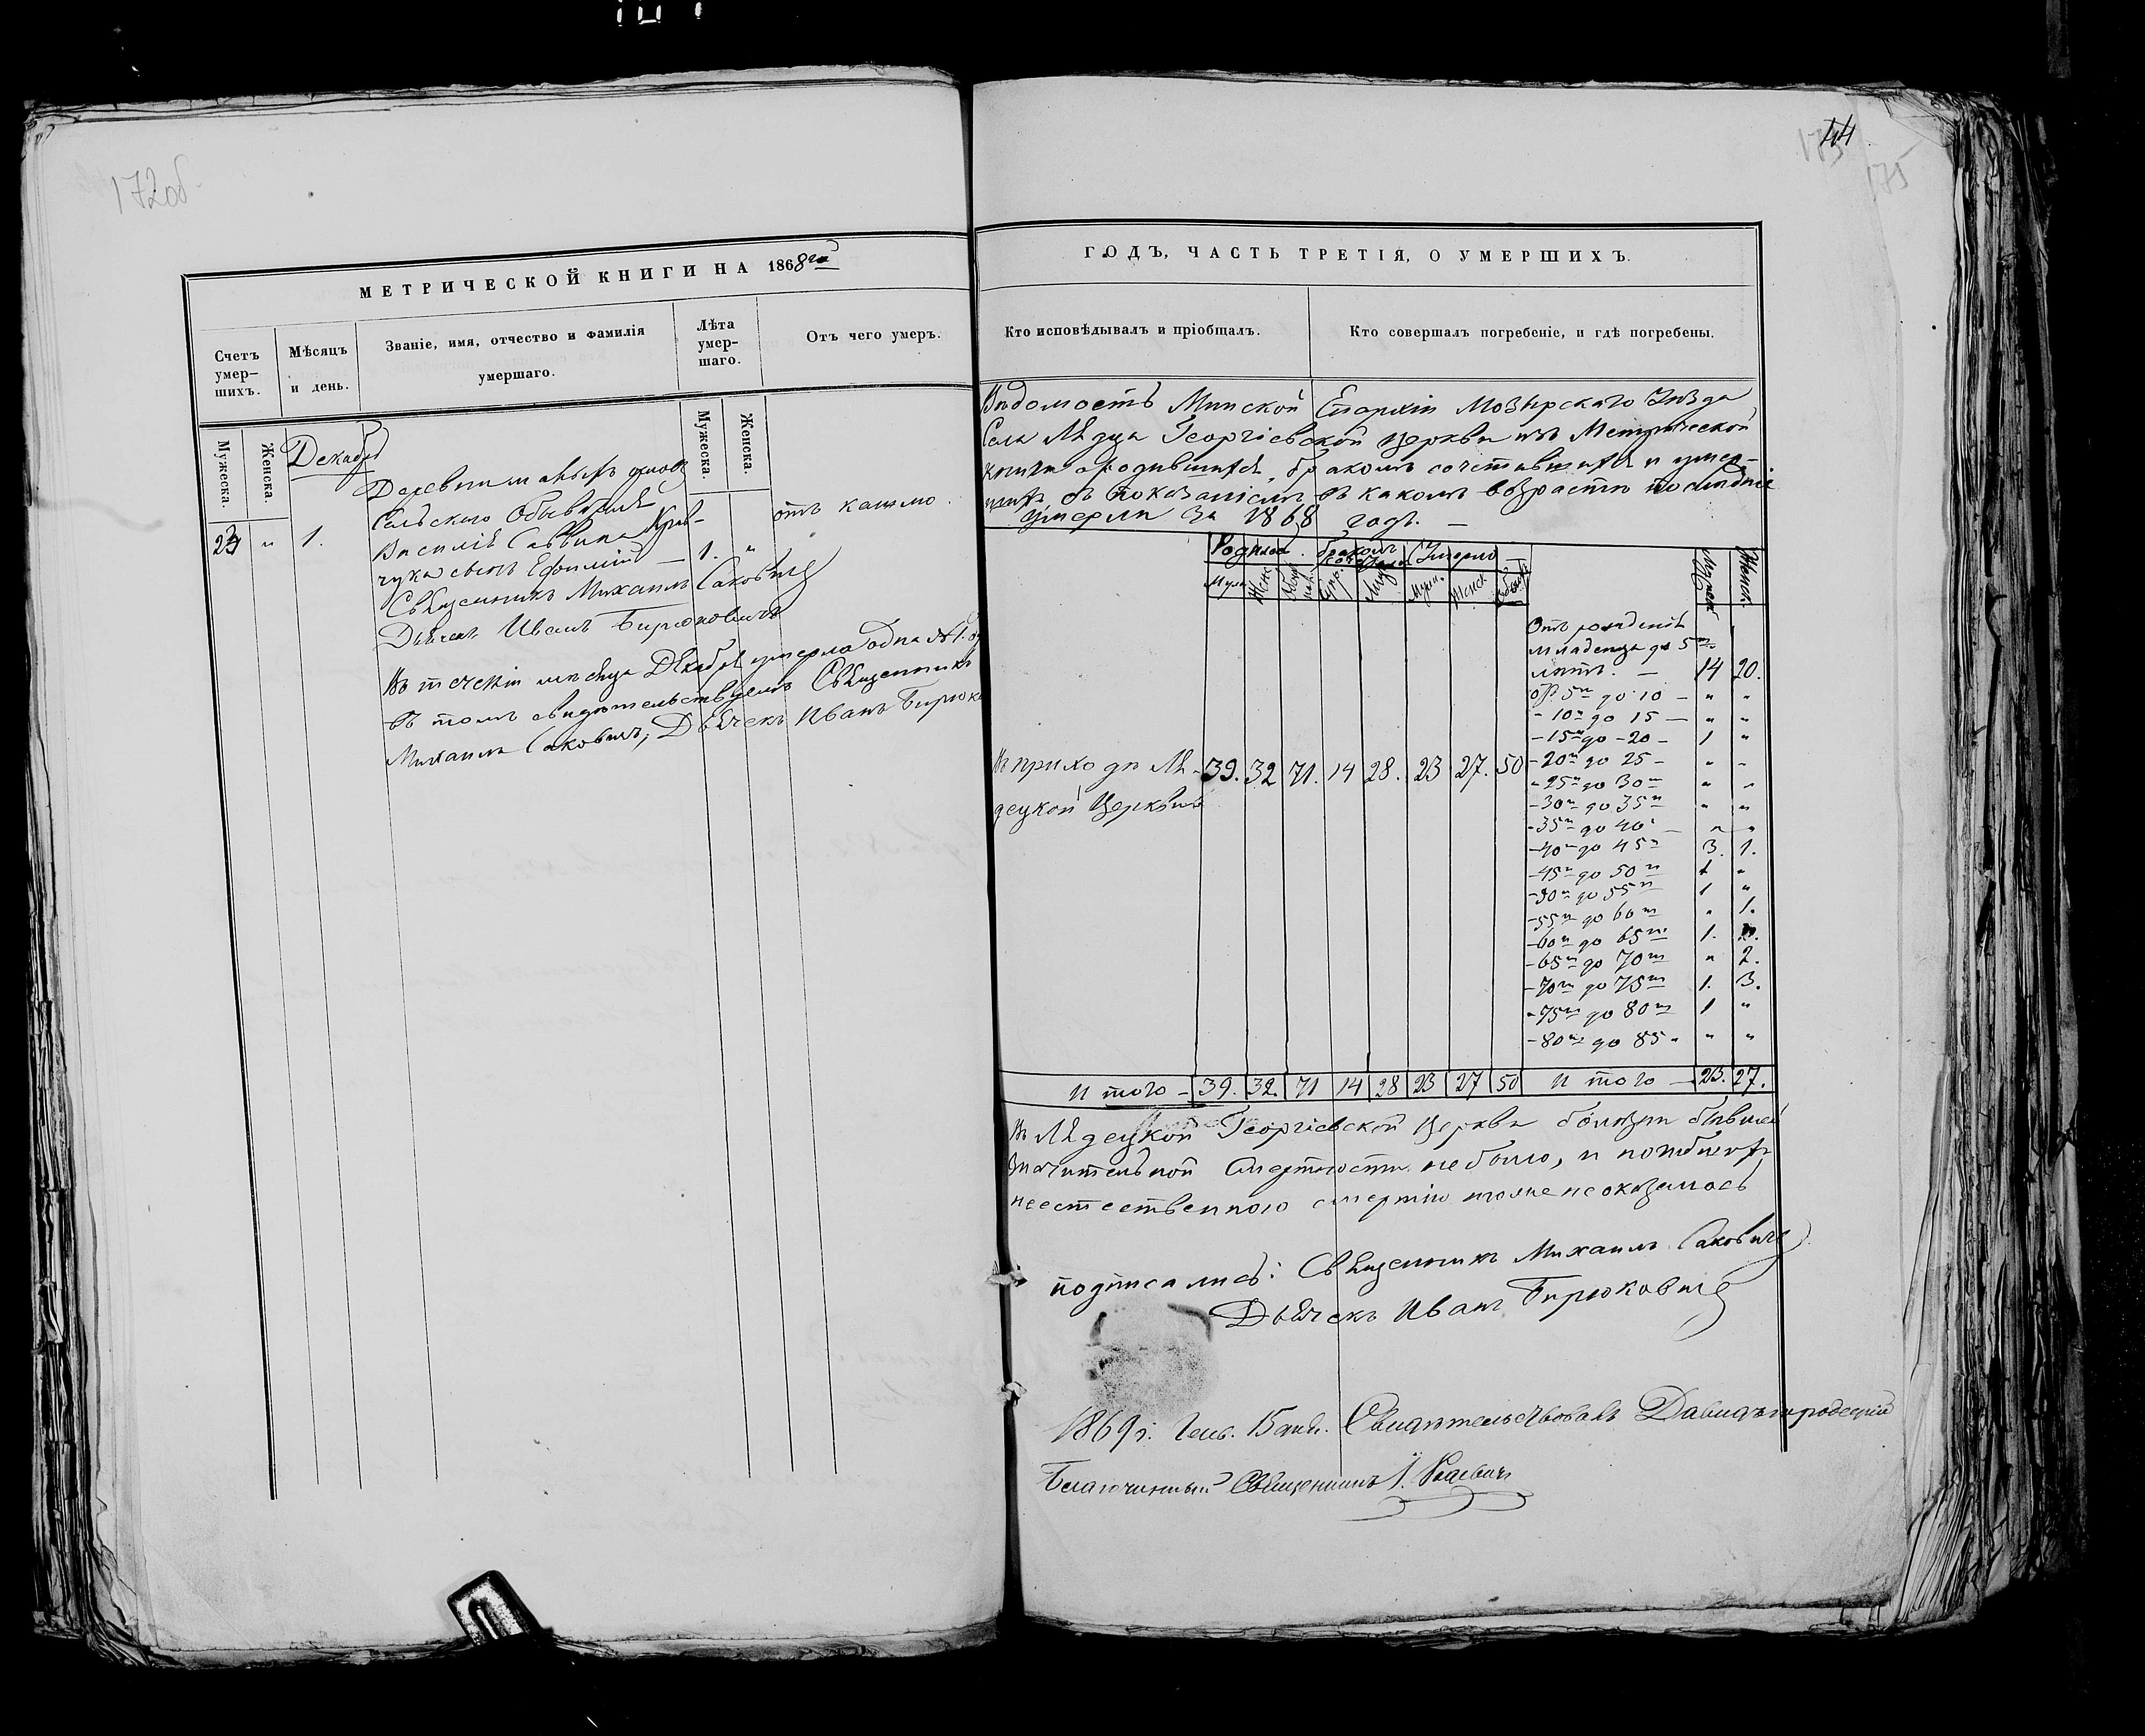 172об
44
175
МЕТРИЧЕСКОЙ КНИГИ НА 1868й
Счетъ умер-шихъ.
Мѣсяцъ и день.
Званіе, имя, отчество и фамилія умершаго.
Лѣта умер-шаго.
Отъ чего умеръ.
Мужеска.
Женска.
Мужеска.
Женска.
Декабрь
Деревни
Сельского Обывателя
23 " 1. Василія Саввина Крив- отъ кашлю.
чука сынъ Ефимій — 1. "
Священникъ Михаилъ Саковичъ
Дьячекъ Иванъ Бирюковичъ
Въ теченіи мѣсяца Декабря умерло одна №1.
въ томъ свидѣтельствуемъ Священникъ
Михаилъ Саковичъ, Дьячекъ Иванъ Бирюко
ГОДЪ, ЧАСТЬ ТРЕТІЯ, О УМЕРШИХЪ.
Кто исповѣдывалъ и пріобщалъ.
Кто совершалъ погребеніе, и гдѣ погребены.
Вѣдомость Минской Епархіи Мозырскаго Уѣзда
Села Лядца Георгіевской церкви изъ Метрической
книги о родившихся, бракомъ сочетавшихся и умер-
шихъ съ показаніемъ въ какомъ возрастѣ послѣдніе
умерли за 1868 годъ. —
Родилось. бракомъ Умерло
Муж. Женс. Обоих. пол. Супр. Лицъ Муж. Женск. Обоих. Мужеск. Женск.
Отъ рожденія
младенца до 5ти
лѣтъ. — 14 20.
отъ 5ти до 10 — " "
— 10ти до 15 — " "
— 15ти до — 20 — 1 "
Въ приходѣ Ля- 39. 32 71. 14 28. 23 27. 50 — 20ти до 25 — " "
— 25ти до 30ти " "
децкой Церкви — 30ти до 35ти " "
— 35ти до 40 — " "
— 40 до 45 3. 1.
— 45ти до 50ти 1 "
— 50ти до 55ти 1 "
— 55ти до 60ти " 1.
— 60ти до 65ти 1.
— 65ти до 70ти " 2.
— 70ти до 75ти 1. 3.
— 75ти до 80ти 1 "
— 80ти до 85 " "
Итого — 39. 32. 71 14 28 23 27 50 Итого — 23. 27.
Въ Лядецкой Георгіевской Церкви болѣзни бывшей
значительной смертности не было, и погибшихъ
неестественного смертію тоже не оказалось
подписались: Священникъ Михаилъ Саковичъ
Дьячекъ Иванъ Бирюковичъ
1869 г. Генв. 15 дня. Свидѣтельствовалъ Давидъгородецкій
Благочинный Священникъ І.